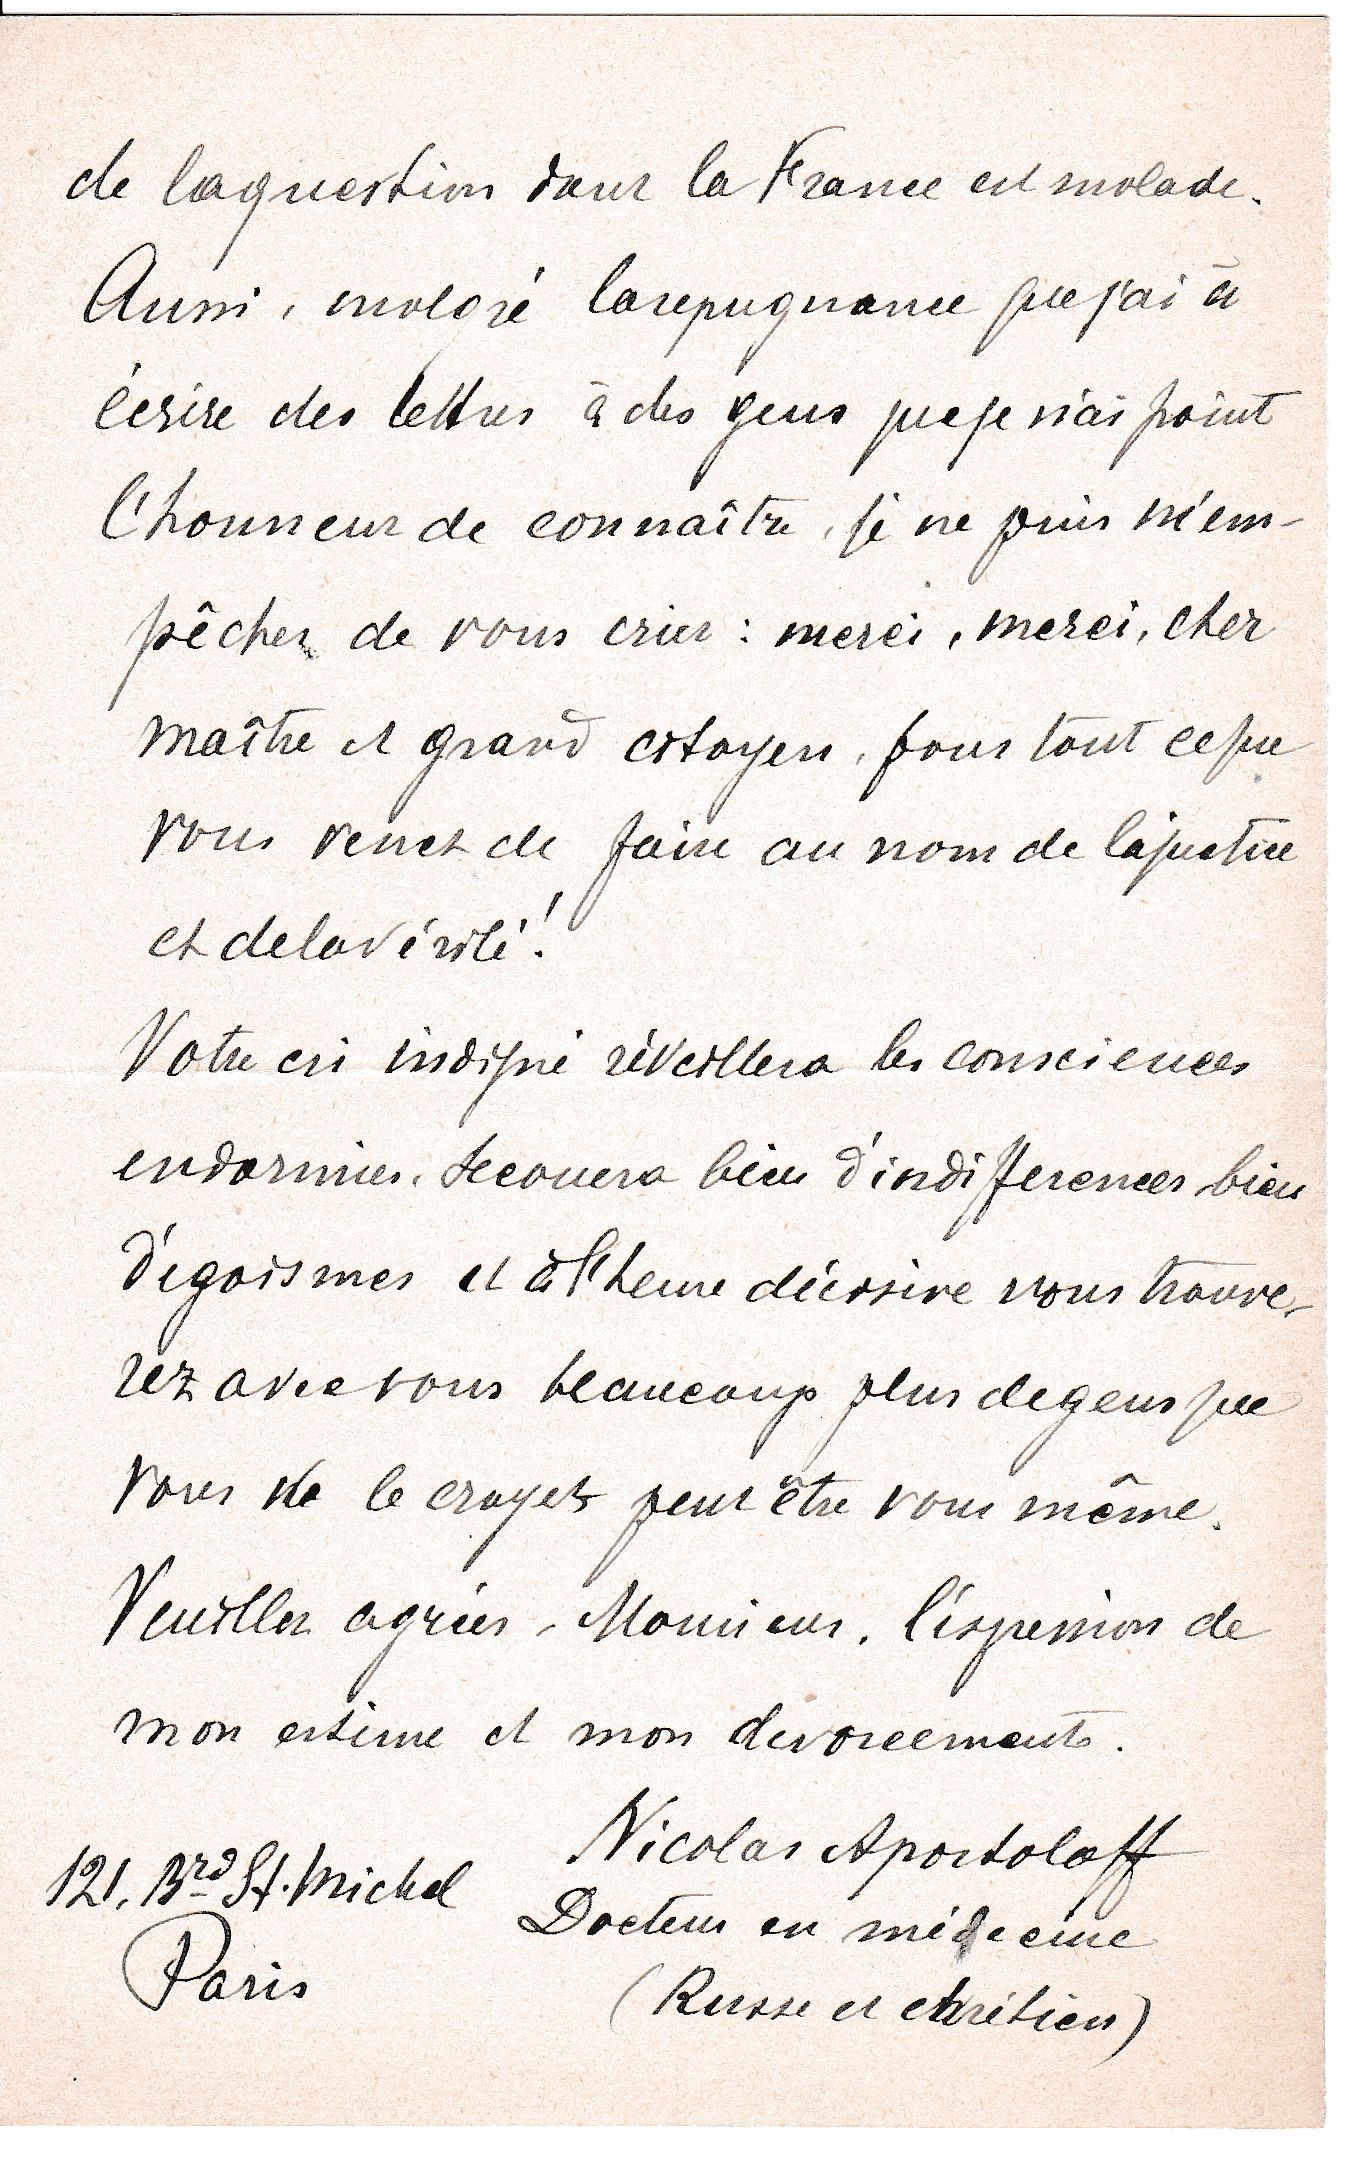 de la question dont la France est malade.
Aussi, malgré la repugnance que j'ai à
écrire des lettres à des gens que je n'ai point
l'honneur de connaître, je ne puis m'em-
pêcher de vous crier : merci, merci, cher
maître et grand citoyen, pour tout ce que
vous venez de faire au nom de la justice
et de la vérité !
Votre cri indigné réveillera les consciences
endormies, secouera bien d'indifferences bien
d'égoismes et à l'heure décisive vous trouve-
rez avec vous beaucoup plus de gens que
vous ne le croyez peut être vous même.
Veuillez agréer, Monsieur, l'expression de
mon estime et mon devouement.
Nicolas Apostoloff
121, Brd St. Michel
Docteur en médecine
Paris
(Russe et chrétien)